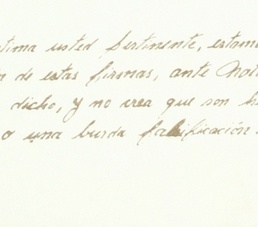 tima usted pertinente, estam
n de estas firmas, ante Not
dicho, y no crea que son h
o una burda falsificación.